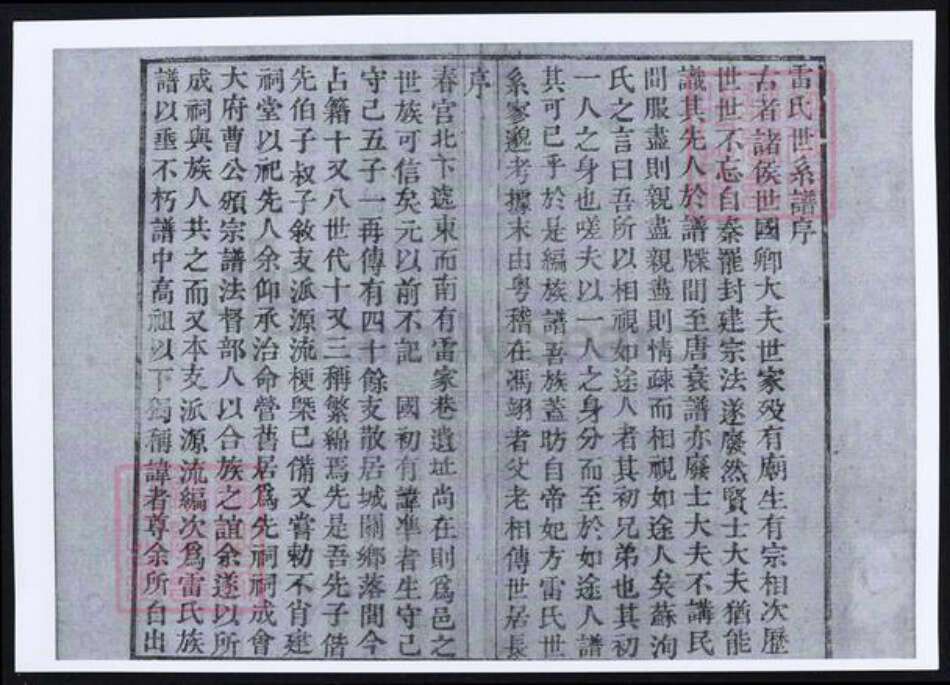 雷氏世系譜序
古者諸侯世國卿大夫世家殁有廟生有宗相次歷
世世不忘自秦罷封建宗法遂廢然賢士大夫猶能
識其先人於譜牒間至唐衰譜亦廢士大夫不講民
間服盡則親盡親盡則情疎而相視如途人矣蘇洵
氏之言曰吾所以相視如途人者其初兄弟也其初
一人之身也嗟夫以一人之身分而至於如途人譜
其可已乎於是編族譜吾族蓋昉自帝妃方雷氏世
系寥邈考據末由粵稽在馮翊者父老相傳世居長
序
春宮北卞遶東而南有雷家巷遺址尚在則爲邑之
世族可信矣元以前不記 國初有諱準者生守己
守己五子一再傳有四十餘支散居城關鄉落間今
占籍十又八世代十又三稱繁綿焉先是吾先子偕
先伯子叔子敘支派源流梗槩已備又嘗勅不肖建
祠堂以祀先人余仰承治命營舊居爲先祠祠成會
大府曹公頒宗譜法督部人以合族之誼余遂以所
成祠與族人共之而又本支派源流編次爲雷氏族
譜以垂不朽譜中高祖以下獨稱諱者尊余所自出